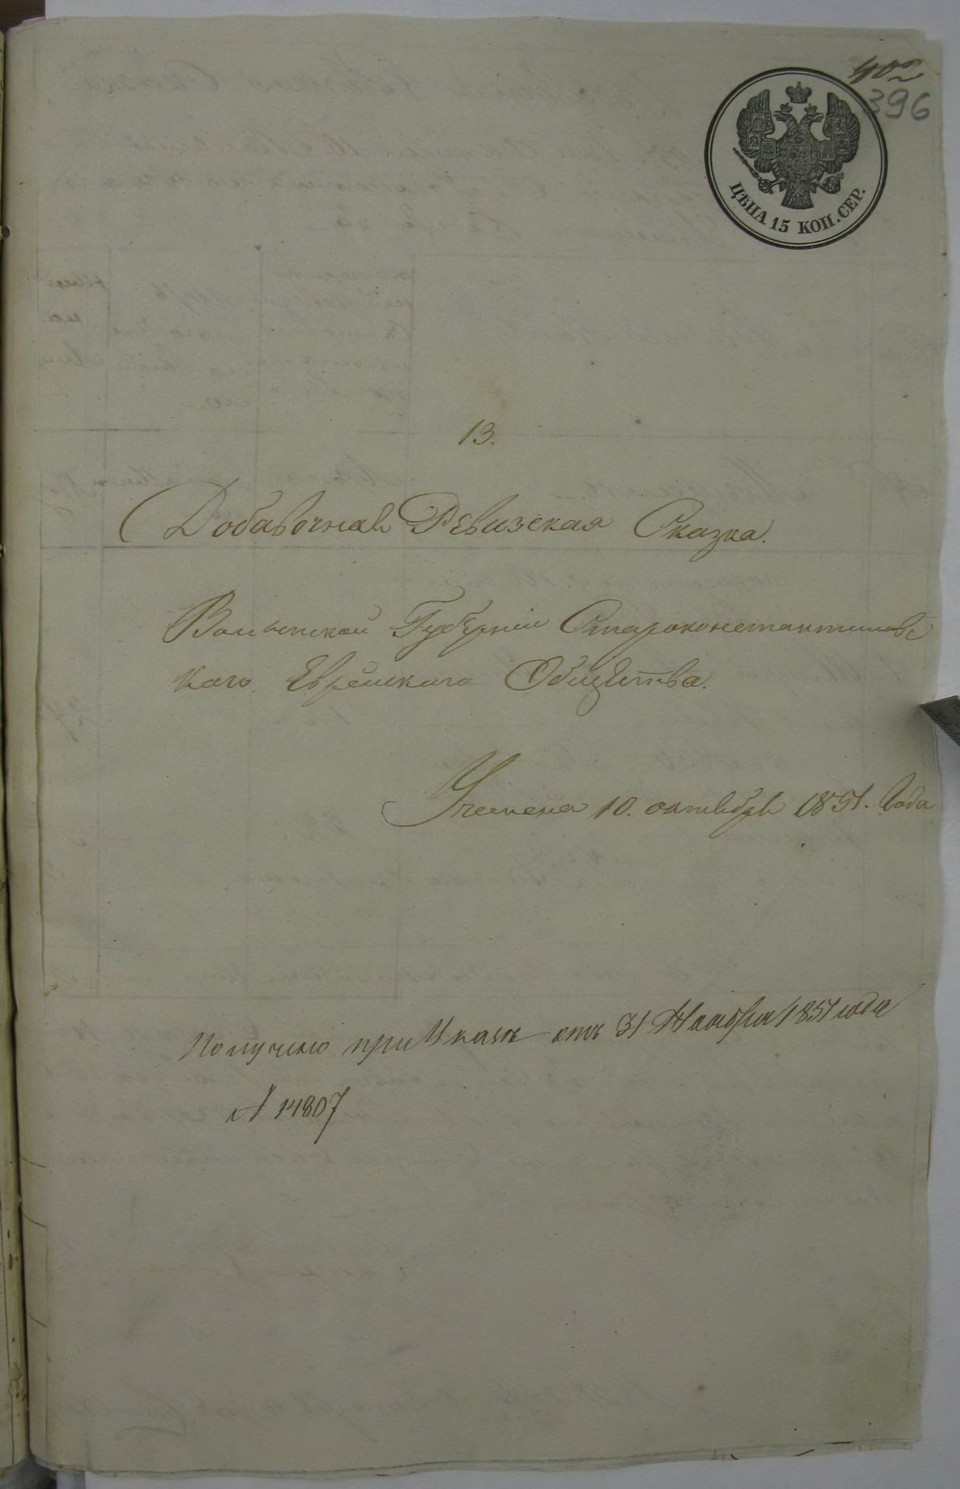 396
ЦѢНА 15 КОП. СЕР.
13.
Добавочная Ревизская Сказка.
Волынской Губерніи Староконстантиновс
каго Еврейскаго Общества.
10. октября 1851. Года
Получено при Указе отъ 31 Ноября 1851 года
№ 14807